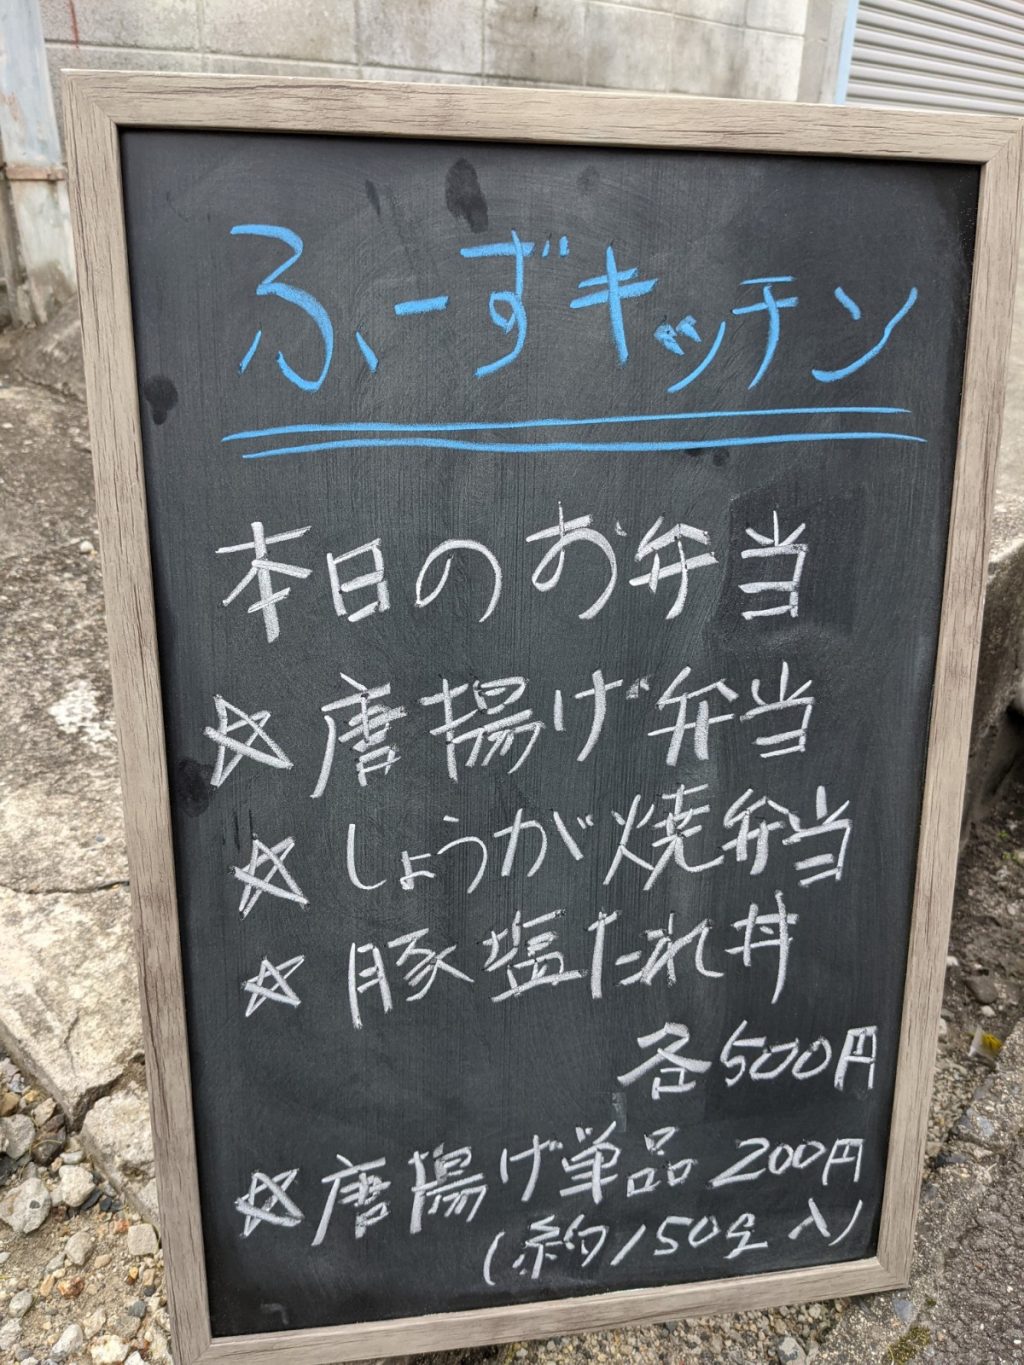 ふーずキッチン
本日のお弁当
☆ 唐揚げ弁当
☆ しょうが焼弁当
☆ 豚塩たれ丼
各500円
☆ 唐揚げ単品 200円
(約150g入)